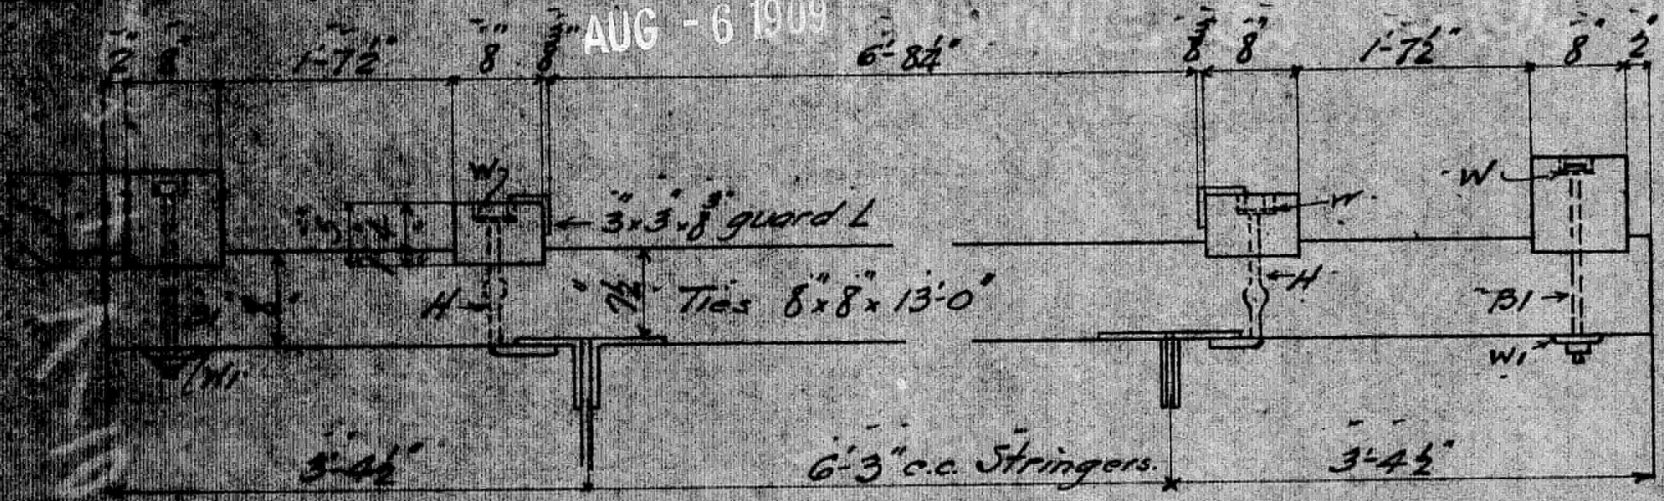 AUG - 6 1909
2" 8" 1'-7½" 8" ⅜" 6'-8¼" ⅜" 8" 1'-7½" 8" 2"
W
W
W
3"x3"x⅜" guard L
H
7½"
Ties 8"x8"x13'-0"
H
B1
W1
W1
3'-4½"
6'-3" c.c. Stringers.
3'-4½"